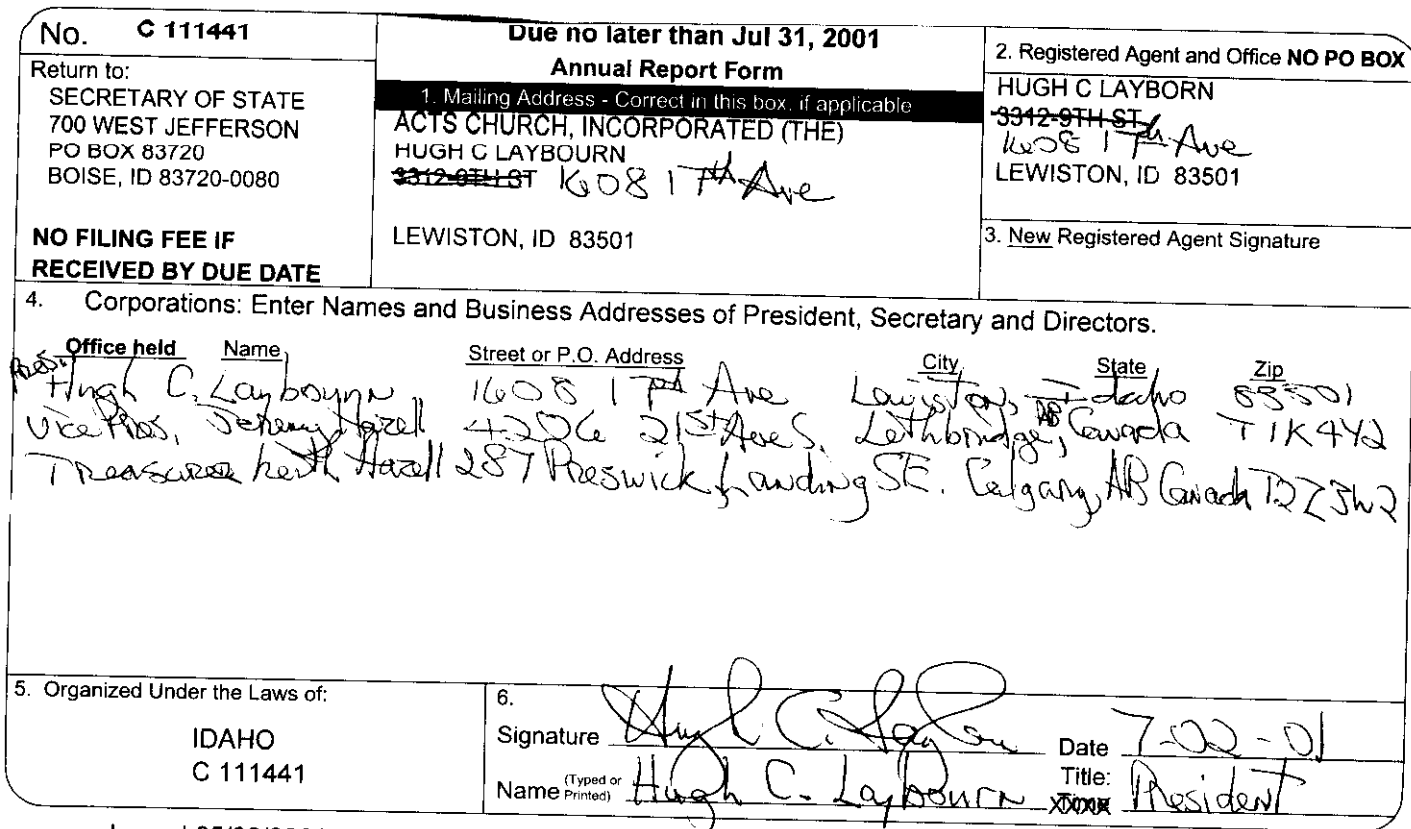 No. C 111441
Return to:
SECRETARY OF STATE
700 WEST JEFFERSON
PO BOX 83720
BOISE, ID 83720-0080
NO FILING FEE IF
RECEIVED BY DUE DATE
Due no later than Jul 31, 2001
Annual Report Form
1. Mailing Address - Correct in this box, if applicable
ACTS CHURCH, INCORPORATED (THE)
HUGH C LAYBOURN
3312-9TH ST 1608 17th Ave
LEWISTON, ID 83501
2. Registered Agent and Office NO PO BOX
HUGH C LAYBORN
3312-9TH ST
1608 17th Ave
LEWISTON, ID 83501
3. New Registered Agent Signature
4. Corporations: Enter Names and Business Addresses of President, Secretary and Directors.
Office held Name Street or P.O. Address City State Zip
Pres. Hugh C. Laybourn 1608 17th Ave Lewiston, Idaho 83501
Vice Pres, Jeremy Hazell 4206 21st Ave S. Lethbridge, AB Canada T1K4Y2
Treasurer Keith Hazell 287 Preswick Landing SE. Calgary, AB Canada T2Z3W2
5. Organized Under the Laws of:
IDAHO
C 111441
6.
Signature Hugh C. Laybourn Date 7-02-01
Name (Typed or Printed) Hugh C. Laybourn Title: President